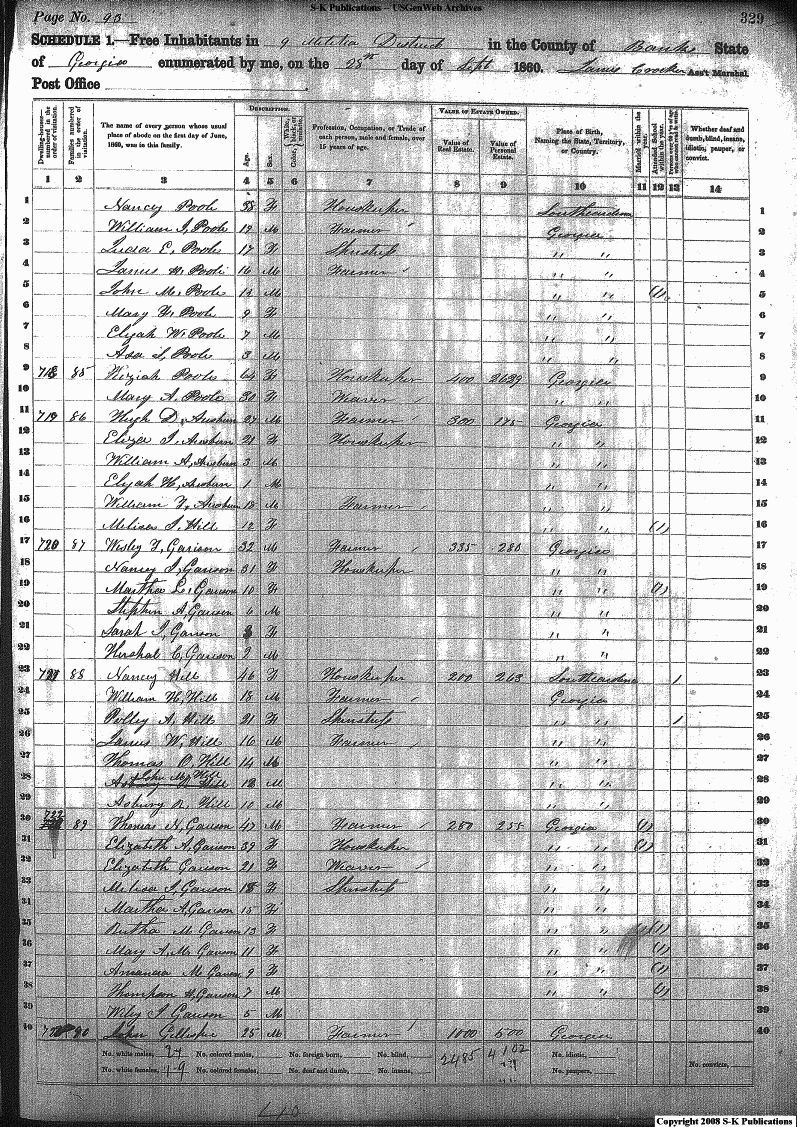 S-K Publications – USGenWeb Archives
Page No. 90 329
SCHEDULE 1.—Free Inhabitants in 9 Militia District in the County of Banks State
of Georgia enumerated by me, on the 28th day of Sept 1860. James Crocker Ass't Marshal.
Post Office
DESCRIPTION. VALUE OF ESTATE OWNED.
Dwelling-houses—numbered in the order of visitation.
Families numbered in the order of visitation.
The name of every person whose usual place of abode on the first day of June, 1860, was in this family.
Age. Sex.
Profession, Occupation, or Trade of each person, male and female, over 15 years of age.
Value of Real Estate. Value of Personal Estate.
Place of Birth, Naming the State, Territory, or Country.
Married within the year. Attended School within the year.
Whether deaf and dumb, blind, insane, idiotic, pauper, or convict.
1 2 3 4 5 6 7 8 9 10 11 12 13 14
1 Nancy Pool F Houskeeper Southcarolina 1
2 William J. Pools 19 M Farmer Georgia 2
3 E. Pools 17 F Spinstress " " 3
4 James H. Pools 16 M Farmer " " 4
5 John M. Pools M " " (1) 5
6 Mary Pools 9 F " " 6
7 Elijah W. Pools 7 M " " 7
8 Asa S. Pools 3 M " " 8
9 718 85 Kiziah Pools 64 F Houskeeper 400 2629 Georgia 9
10 Mary A. Pools 30 F Weaver " " 10
11 719 86 Hugh D. Ausburn 27 M Farmer 300 175 Georgia 11
12 Eliza J. Ausburn 21 F Houskeeper " " 12
13 William A. Ausburn 3 M " " 13
14 Elijah H. Ausburn 1 M " " 14
15 William Ausburn 18 M Farmer " " 15
16 Melissa J. Hill 12 F " " (1) 16
17 720 87 Wesly F. Garison 32 M Farmer 335 280 Georgia 17
18 Nancy J. Garison 31 F Houskeeper " " 18
19 Martha L. Garison 10 F " " (1) 19
20 Stephen A. Garison 6 M " " 20
21 Sarah J. Garison F " " 21
22 Hershal C. Garison 2 M " " 22
23 721 88 Nancy Hill 46 F Houskeeper 200 263 Southcarolina 1 23
24 William H. Hill 18 M Farmer Georgia 24
25 Polley A. Hill 21 F Spinstress " " 1 25
26 James W. Hill 16 M Farmer " " 26
27 Thomas O. Hill 14 M " " 27
28 John M. Hill 12 M " " 28
29 Asbury R. Hill 10 M " " 29
30 722 89 Thomas N. Garison 47 M Farmer 250 255 Georgia (1) 30
31 Elizabeth A. Garison 39 F Houskeeper " " (1) 31
32 Elizabeth Garison 21 F Weaver " " 32
33 Melisa J. Garison 18 F Spinstress " " 33
34 Martha A. Garison 15 F " " 34
35 M. Garison 13 F " " (1) 35
36 Mary A. M. Garison 11 F " " (1) 36
37 Amanda M. Garison 9 F " " (1) 37
38 Thompson H. Garison 7 M " " (1) 38
39 Wiley S. Garison 5 M " " 39
40 90 John Gillispie 25 M Farmer 1000 500 Georgia 40
No. white males, 21 No. colored males, No. foreign born, No. blind, 2485 4102 No. idiotic, No. convicts,
No. white females, 19 No. colored females, No. deaf and dumb, No. insane, No. paupers,
40
Copyright 2008 S-K Publications